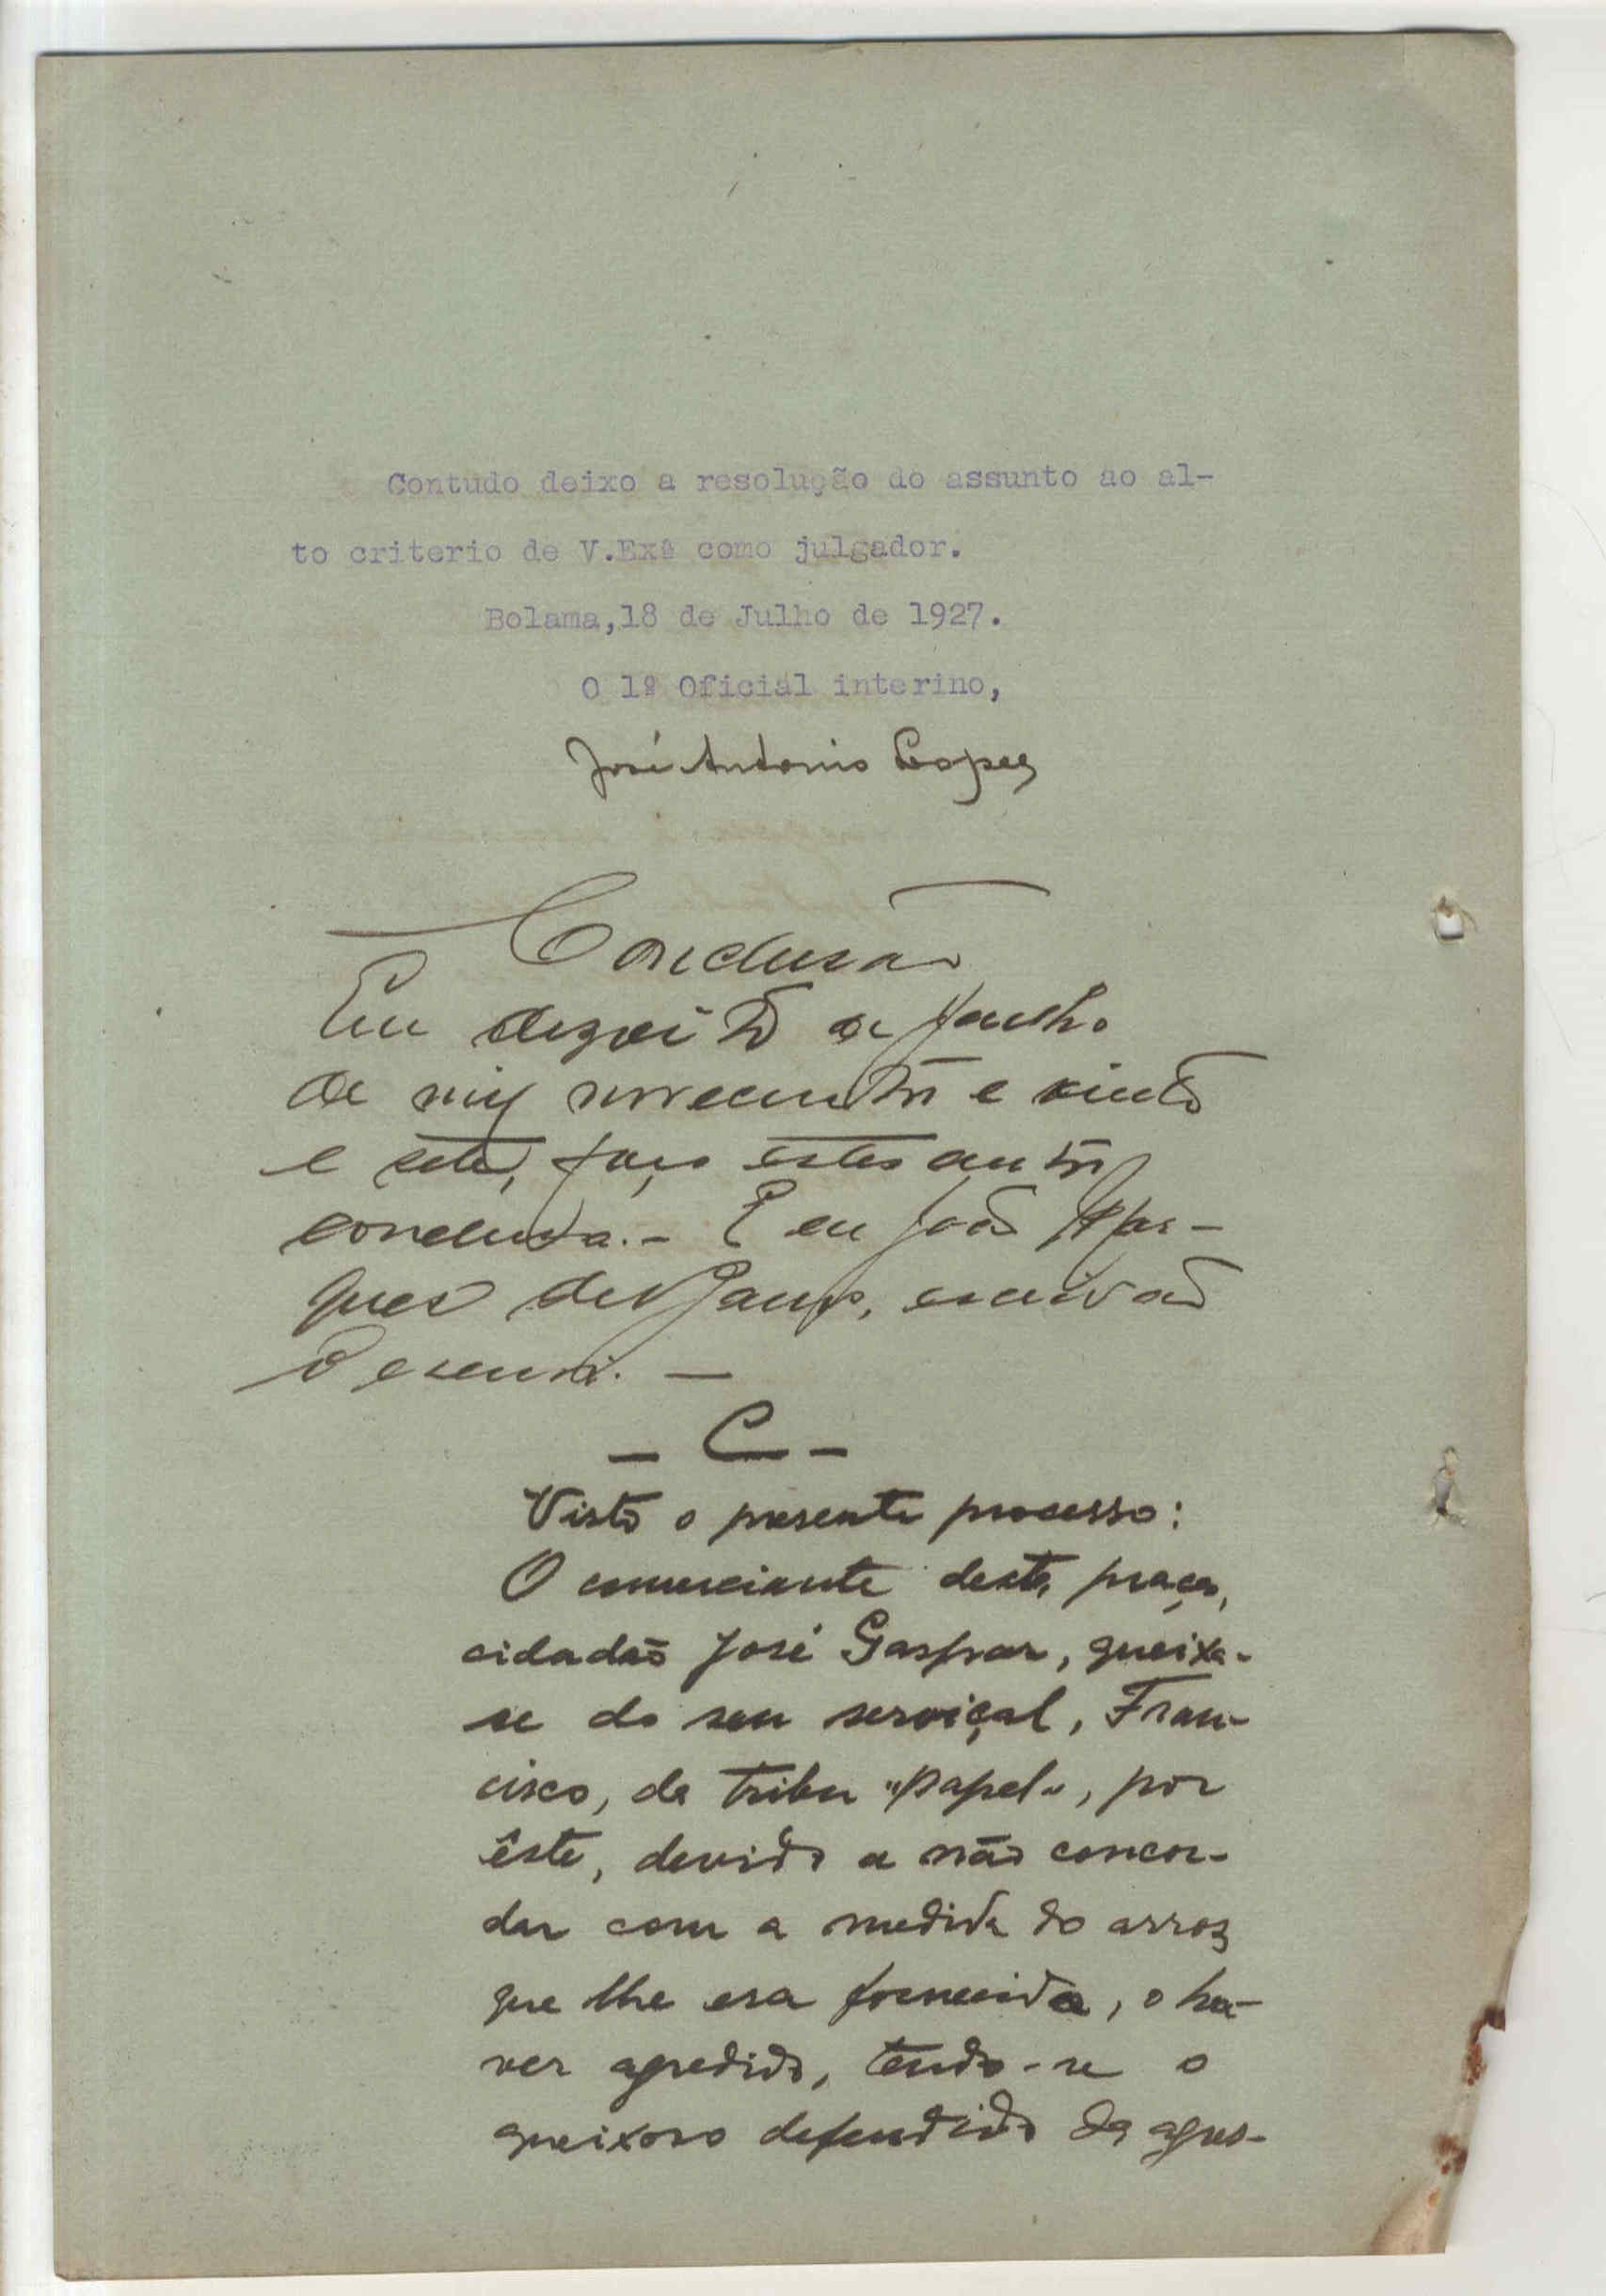 Contudo deixo a resolução do assunto ao al-
to criterio de V.Exª como julgador.
Bolama,18 de Julho de 1927.
O 1º Oficial interino,
José Antonio Lopes
Conclusão
Em dezoito de Julho
de mil novecentos e vinte
e sete, faço estes autos
conclusos.- E eu João Mar-
ques de Barros, escrivão
o escrevi. —
- C -
Visto o presente processo:
O comerciante desta praça,
cidadão José Gaspar, queixa-
se do seu serviçal, Fran-
cisco, da tribu "papel", por
êste, devido a não concor-
dar com a medida do arroz
que lhe era fornecida, o ha-
ver agredido, tendo-se o
queixoso defendido da agres-